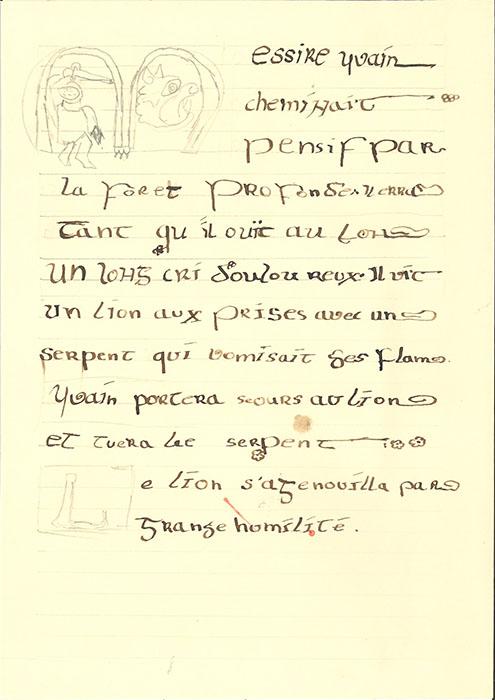 Messire Yvain
cheminait
pensif par
la foret profonde
tant qu'il ouït au loin
un long cri douloureux. Il vit
un lion aux prises avec un
serpent qui vomisait des flam
Yvain portera secours au lion
et tuera le serpent
Le lion s'agenouilla par
grande homilité.